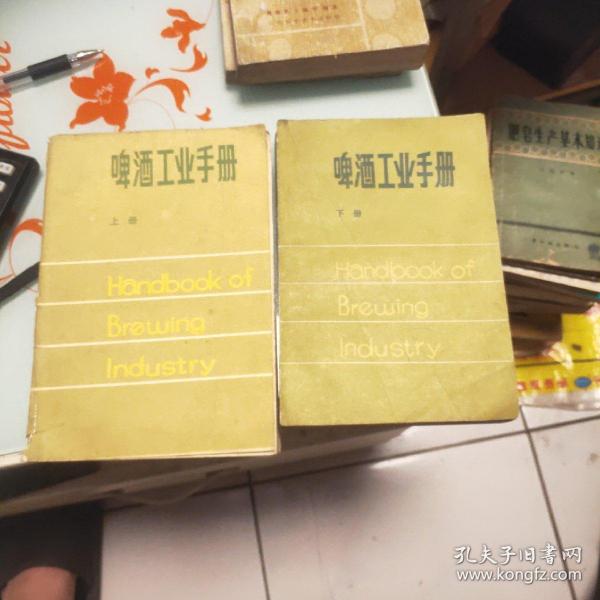 啤酒工业手册
上册
Handbook of
Brewing
Industry
啤酒工业手册
下册
Handbook of
Brewing
Industry
肥皂生产基本知识
孔夫子旧书网
www.kongfz.com